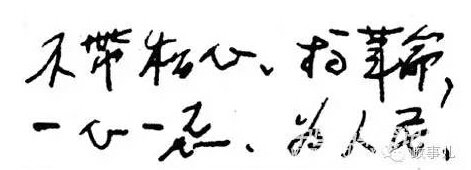 不帶私心、搞革命,
一心一意、为人民.